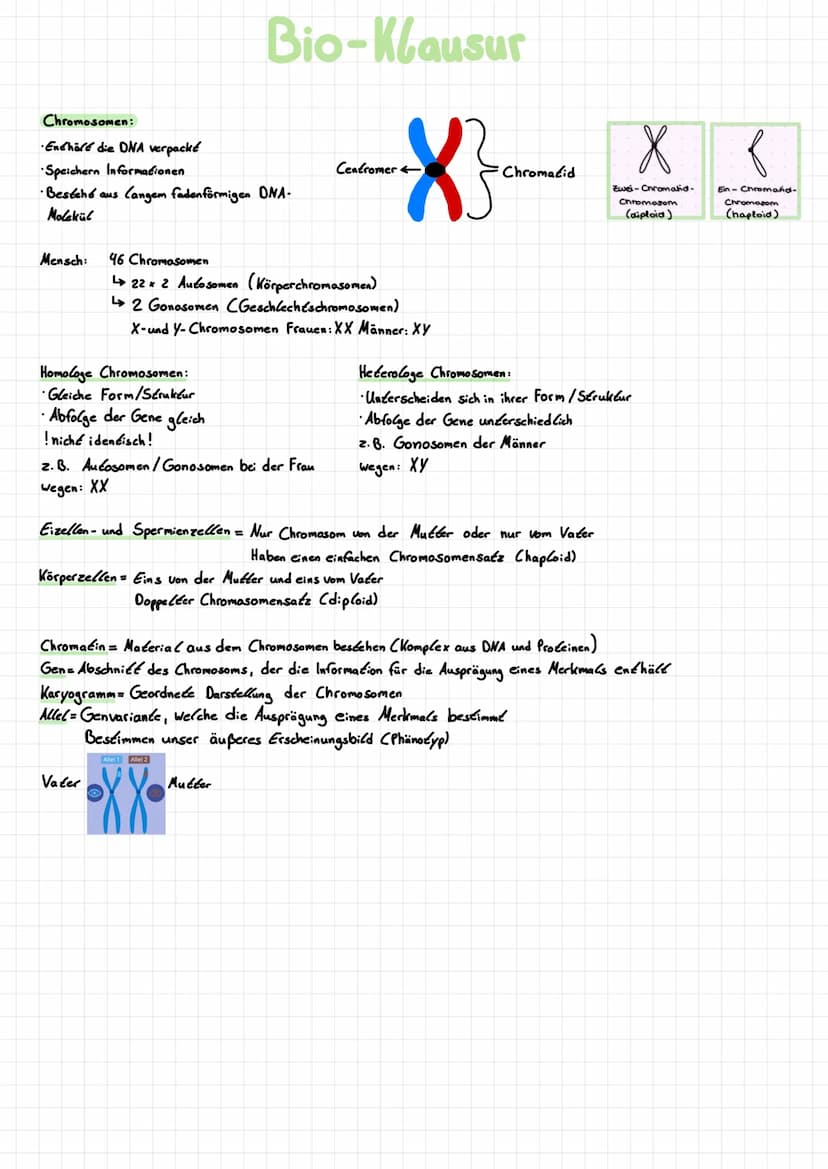 Bio-Klausur
Chromosomen:
·Enthält die DNA verpackt
·Speichern Informationen
·Besteht aus langem fadenförmigen DNA-
Molekül
Centromer ←
Chromatid
Zwei-Chromatid-
Chromosom
(diploid)
Ein-Chromatid-
Chromosom
(haploid)
Mensch: 46 Chromosomen
↳ 22 x 2 Autosomen (Körperchromosomen)
↳ 2 Gonosomen (Geschlechtschromosomen)
X-und Y-Chromosomen Frauen: XX Männer: XY
Homologe Chromosomen:
·Gleiche Form/Struktur
·Abfolge der Gene gleich
!nicht identisch!
z.B. Autosomen/Gonosomen bei der Frau
wegen: XX
Heterologe Chromosomen:
·Unterscheiden sich in ihrer Form/Struktur
·Abfolge der Gene unterschiedlich
z.B. Gonosomen der Männer
wegen: XY
Eizellen- und Spermienzellen = Nur Chromosom von der Mutter oder nur vom Vater
Haben einen einfachen Chromosomensatz (haploid)
Körperzellen = Eins von der Mutter und eins vom Vater
Doppelter Chromosomensatz (diploid)
Chromatin = Material aus dem Chromosomen bestehen (Komplex aus DNA und Proteinen)
Gen = Abschnitt des Chromosoms, der die Information für die Ausprägung eines Merkmals enthält
Karyogramm = Geordnete Darstellung der Chromosomen
Allel = Genvariante, welche die Ausprägung eines Merkmals bestimmt
Bestimmen unser äußeres Erscheinungsbild (Phänotyp)
Allel 1 Allel 2
Vater Mutter